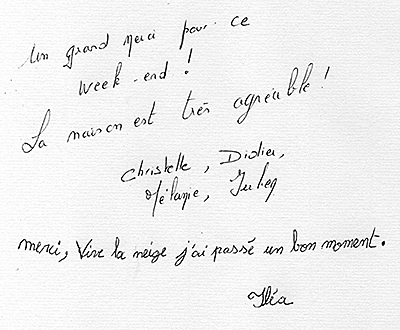 Un grand merci pour ce
week-end !
La maison est très agréable !
Christelle, Didier,
Mélanie, Julien
merci, Vive la neige j'ai passé un bon moment.